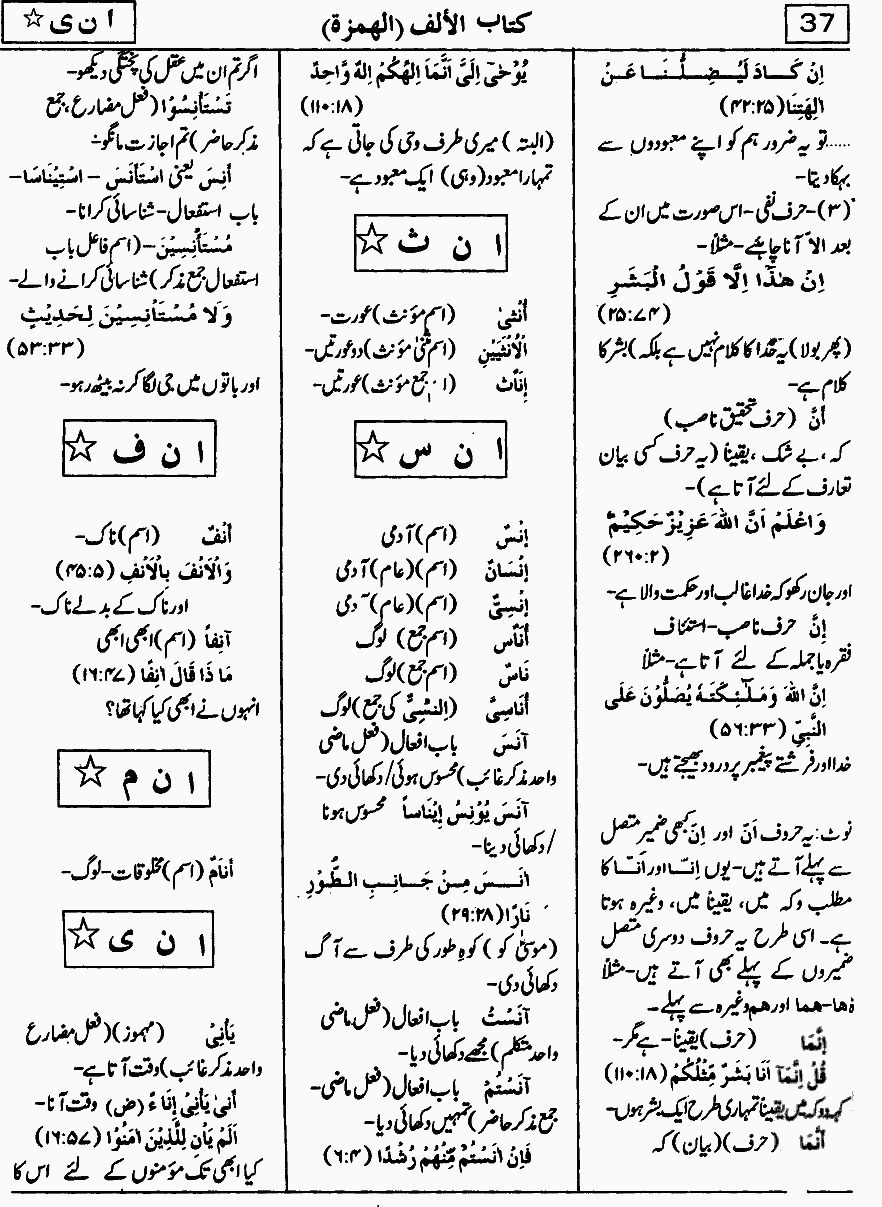 37
كتاب الألف (الهمزة)
ا ن ی ☆
اِنْ كَادَ لَيُضِلُّنَا عَنْ
اٰلِهَتِنَا (۴۲:۲۵)
.....تو یہ ضرور ہم کو اپنے معبودوں سے
بہکا دیتا-
(۳)-حرف نفی-اس صورت میں ان کے
بعد الاّ آنا چاہئے-مثلاً-
اِنْ هٰذَآ اِلَّا قَوْلُ الْبَشَرِ
(۲۵:۷۴)
(پھر بولا) یہ خدا کا کلام نہیں ہے بلکہ) بشر کا
کلام ہے-
اَنَّ (حرف تحقیق ناصب)
کہ، بے شک، یقیناً (یہ حرف کسی بیان
تعارف کے لئے آتا ہے)-
وَاعْلَمْ اَنَّ اللهَ عَزِيْزٌ حَكِيْمٌ
(۲۶۰:۲)
اور جان رکھو کہ خدا غالب اور حکمت والا ہے-
اِنَّ حرف ناصب-استئناف
فقرہ یا جملہ کے لئے آتا ہے-مثلاً
اِنَّ اللهَ وَمَلٰٓئِكَتَهٗ يُصَلُّوْنَ عَلَى
النَّبِيِّ (۵۶:۳۳)
خدا اور فرشتے پیغمبر پر درود بھیجتے ہیں-
نوٹ: یہ حروف اَنَّ اور اِنَّ کبھی ضمیر متصل
سے پہلے آتے ہیں-یوں اِنَّا اور اَنَّا کا
مطلب وکہ میں، یقیناً میں، وغیرہ ہوتا
ہے۔ اسی طرح یہ حروف دوسری متصل
ضمیروں کے پہلے بھی آتے ہیں-مثلاً
ہ ھا-ھما اور ھم وغیرہ سے پہلے-
اِنَّمَا (حرف) یقیناً-ہے مگر-
قُلْ اِنَّمَآ اَنَا بَشَرٌ مِّثْلُكُمْ (۱۱۰:۱۸)
کہہ دو کہ میں یقیناً تمہاری طرح ایک بشر ہوں-
اَنَّمَا (حرف) (بیان) کہ
يُوْحٰٓى اِلَيَّ اَنَّمَآ اِلٰهُكُمْ اِلٰهٌ وَّاحِدٌ
(۱۱۰:۱۸)
(البتہ) میری طرف وحی کی جاتی ہے کہ
تمہارا معبود (وہی) ایک معبود ہے-
ا ن ث ☆
اُنْثٰى (اسم مؤنث) عورت-
الْاُنْثَيَيْنِ (اسم مثنیٰ مؤنث) دو عورتیں-
اِنَاث (اسم جمع مؤنث) عورتیں-
ا ن س ☆
اِنْسٌ (اسم) آدمی
اِنْسَانٌ (اسم) (عام) آدمی
اِنْسِيٌّ (اسم) (عام) آدمی
اُنَاسٌ (اسم جمع) لوگ
نَاسٌ (اسم جمع) لوگ
اَنَاسِيَّ (اِنْسِیٌّ کی جمع) لوگ
آنَسَ باب افعال (فعل ماضی
واحد مذکر غائب) محسوس ہوئی/دکھائی دی-
آنَسَ يُوْنِسُ اِيْنَاساً محسوس ہونا
/دکھائی دینا-
اٰنَسَ مِنْ جَانِبِ الطُّوْرِ
نَارًا (۲۹:۲۸)
(موسیٰ کو) کوہ طور کی طرف سے آگ
دکھائی دی-
آنَسْتُ باب افعال (فعل ماضی
واحد متکلم) مجھے دکھائی دیا-
آنَسْتُمْ باب افعال (فعل ماضی-
جمع مذکر حاضر) تمہیں دکھائی دیا-
فَاِنْ اٰنَسْتُمْ مِّنْهُمْ رُشْدًا (۶:۴)
اگر تم ان میں عقل کی پختگی دیکھو-
تَسْتَأْنِسُوْا (فعل مضارع، جمع
مذکر حاضر) تم اجازت مانگو-
اَنِسَ یعنی اسْتَأْنَسَ - اسْتِيْنَاسًا-
باب استفعال-شناسائی کرانا-
مُسْتَأْنِسِيْنَ-(اسم فاعل باب
استفعال جمع مذکر) شناسائی کرانے والے-
وَلَا مُسْتَاْنِسِيْنَ لِحَدِيْثٍ
(۵۳:۳۳)
اور باتوں میں جی لگا کر نہ بیٹھ رہو-
ا ن ف ☆
اَنْفٌ (اسم) ناک-
وَالْاَنْفَ بِالْاَنْفِ (۴۵:۵)
اور ناک کے بدلے ناک-
آنِفاً (اسم) ابھی ابھی
مَا ذَا قَالَ اٰنِفًا (۱۶:۴۷)
انہوں نے ابھی کیا کہا تھا؟
ا ن م ☆
اَنَامٌ (اسم) مخلوقات-لوگ-
ا ن ی ☆
يَأْنِيْ (مہموز) (فعل مضارع
واحد مذکر غائب) وقت آتا ہے-
اَنٰى يَأْنِيْ اِنَاءً (ض) وقت آنا-
اَلَمْ يَاْنِ لِلَّذِيْنَ اٰمَنُوْا (۱۶:۵۷)
کیا ابھی تک مؤمنوں کے لئے اس کا